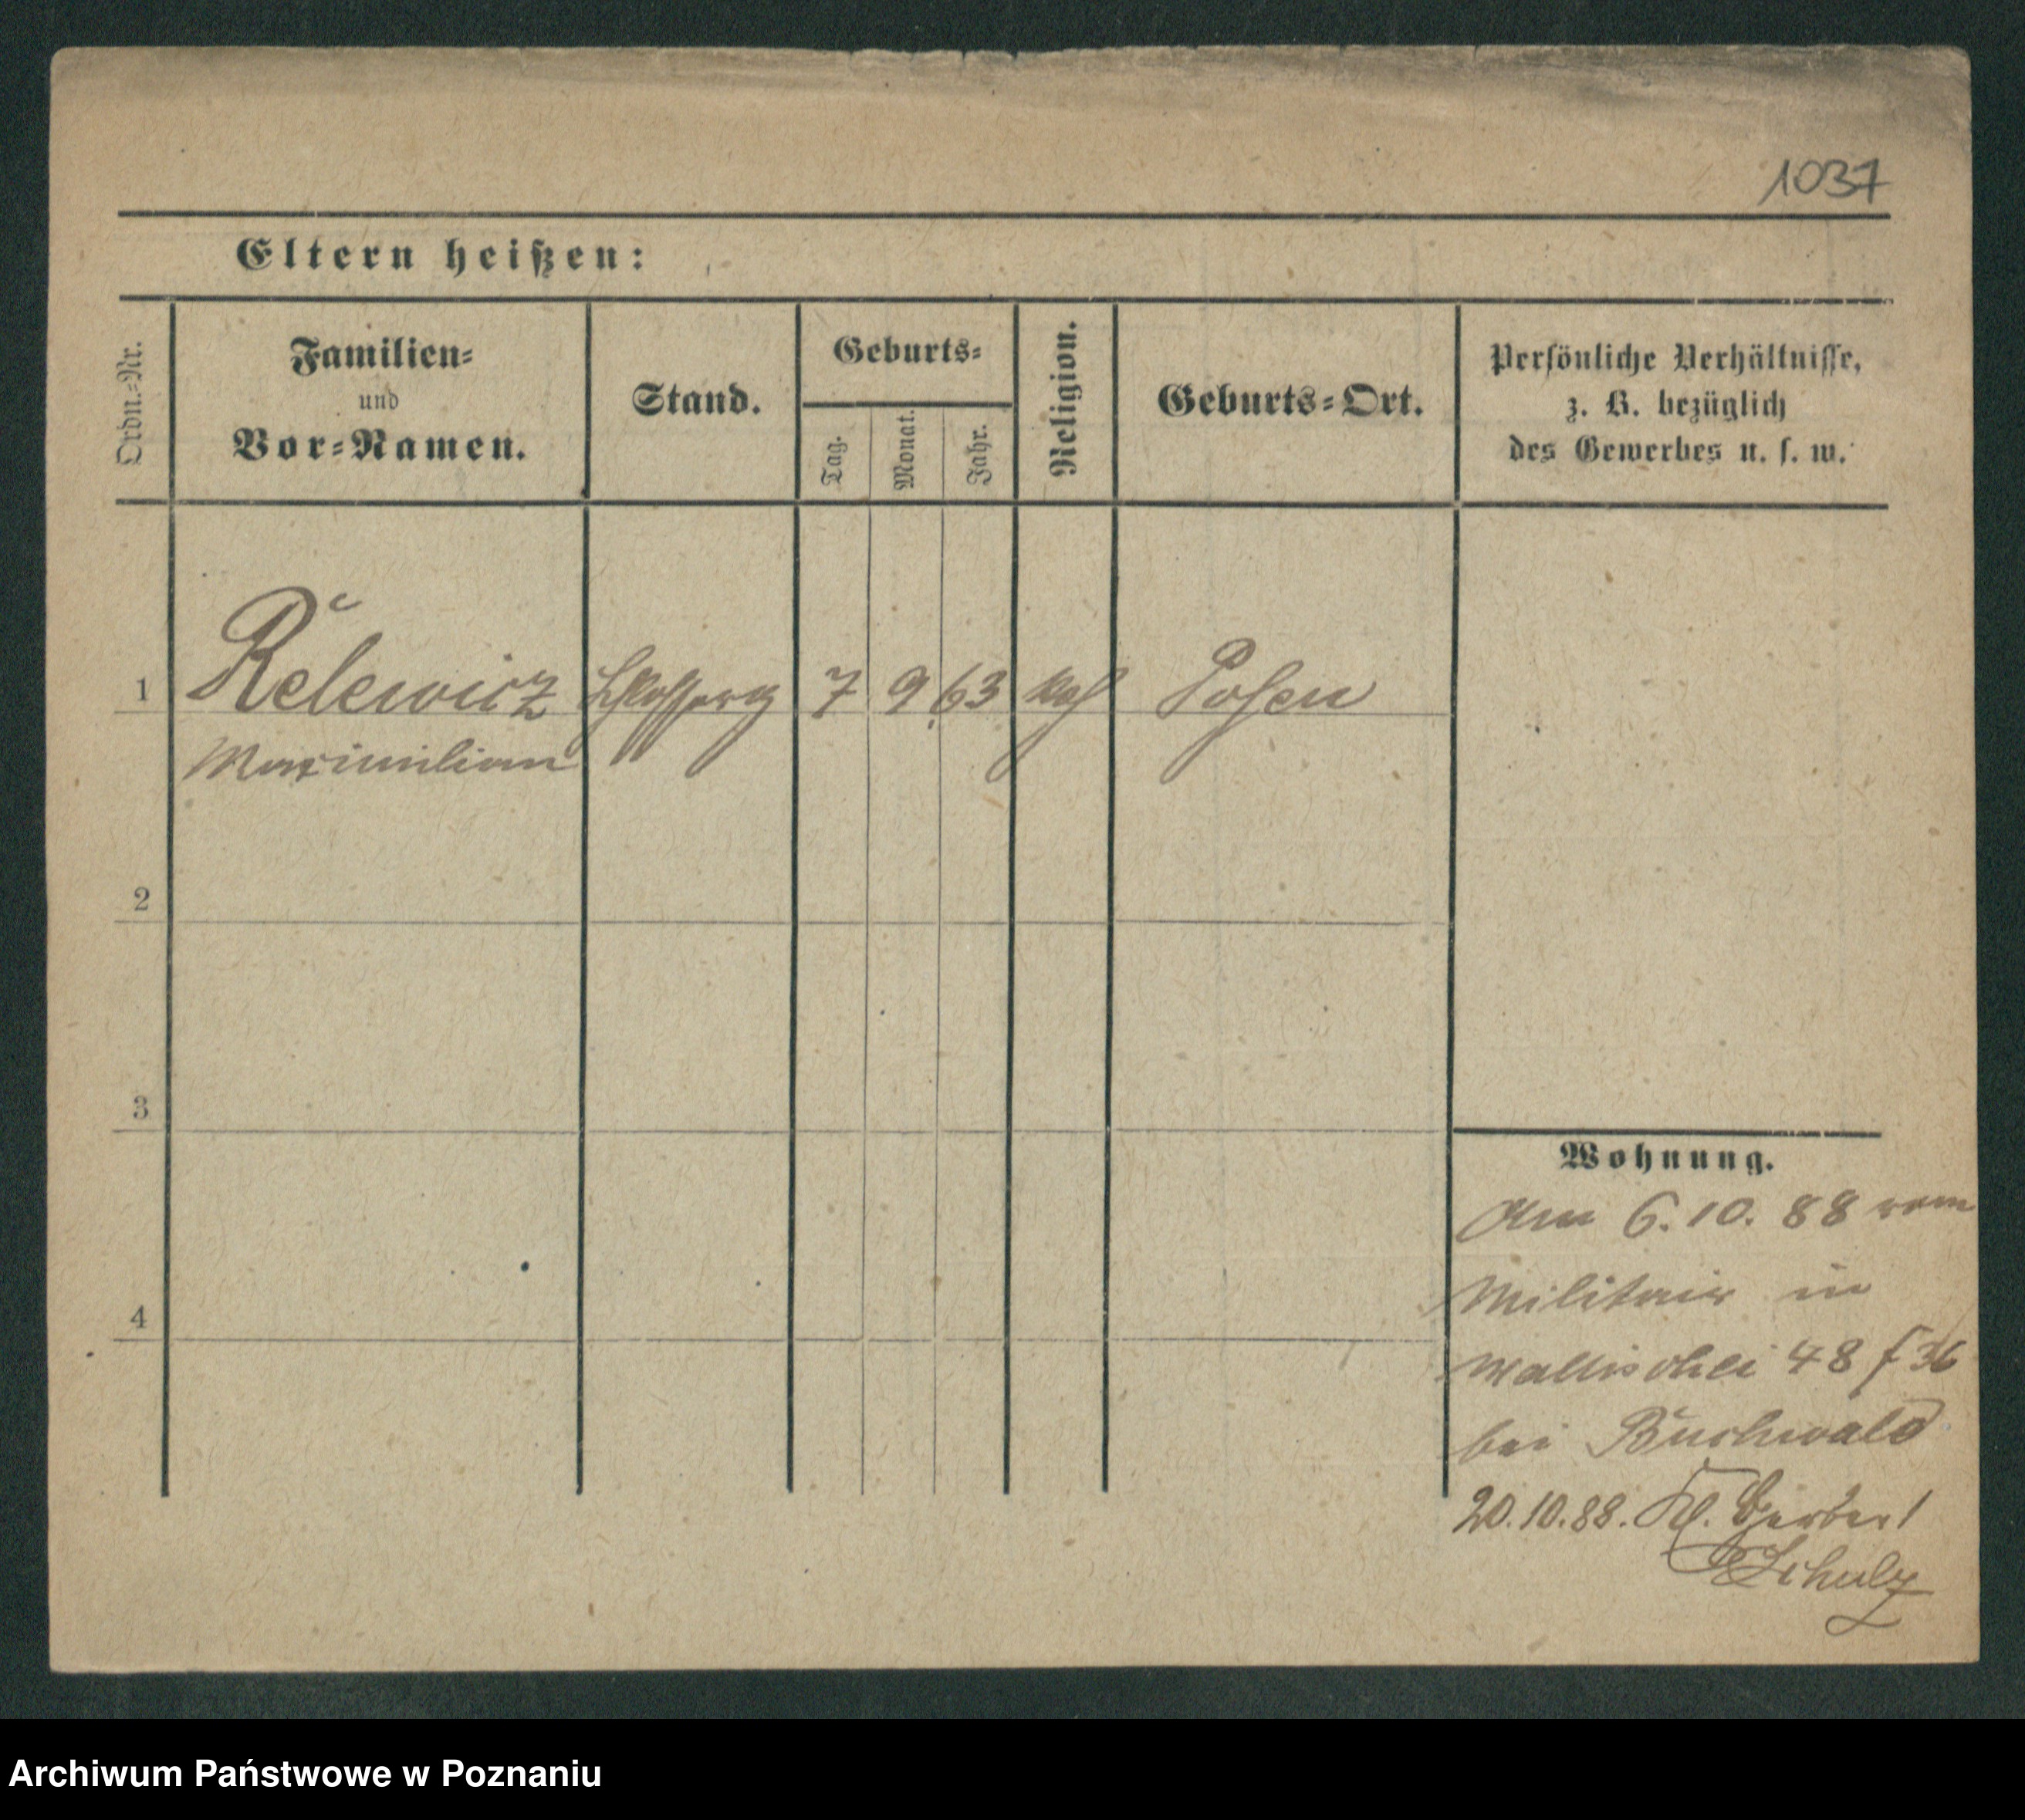 1037
Eltern heißen:
Ordn.=Nr.
Familien=
und
Vor=Namen.
Stand.
Geburts=
Tag.
Monat.
Jahr.
Religion.
Geburts=Ort.
Persönliche Verhältnisse,
z. B. bezüglich
des Gewerbes u. s. w.
1 Relewicz 7 9 63 kath Posen
Maximilian
2
3
4
Wohnung.
Am 6.10.88 vom
Militair in
Wallischei 48 f 36
bei Buchwald
20.10.88. Kl. Gerber 1
Schulz
Archiwum Państwowe w Poznaniu